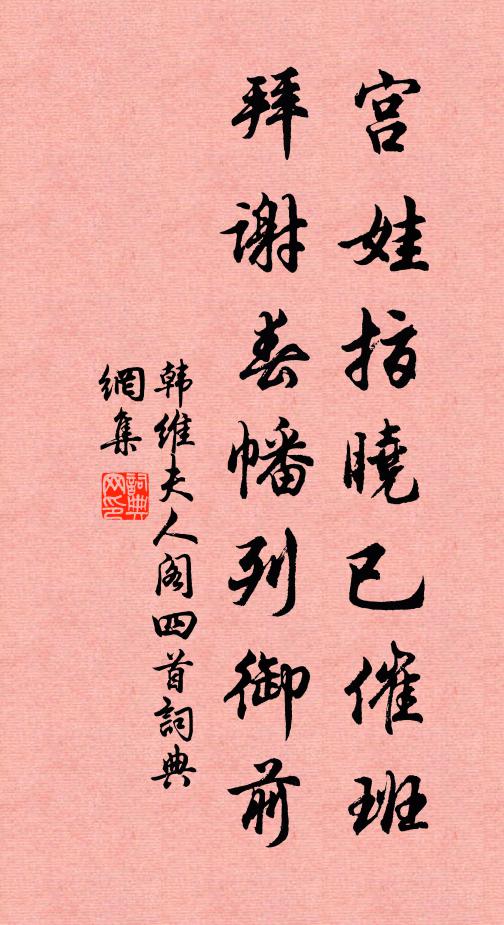 宫娃指曉已催班
拜谢春幡列御前
韩維夫人阁四首詞典
網集
詞典
网印